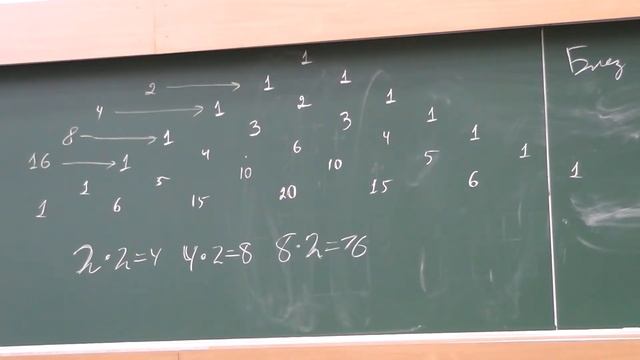 1
2 → 1 1
4 → 1 2 1
8 → 1 3 3 1
16 → 1 4 6 4 1
1 5 10 10 5 1
1 6 15 20 15 6 1
2·2=4 4·2=8 8·2=16
Блез